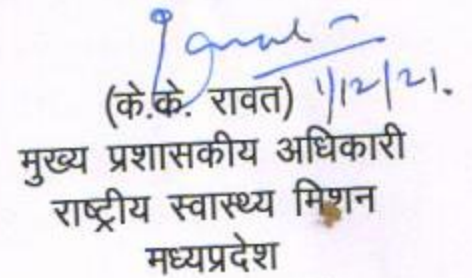 (के.के. रावत) 1/12/21.
मुख्य प्रशासकीय अधिकारी
राष्ट्रीय स्वास्थ्य मिशन
मध्यप्रदेश